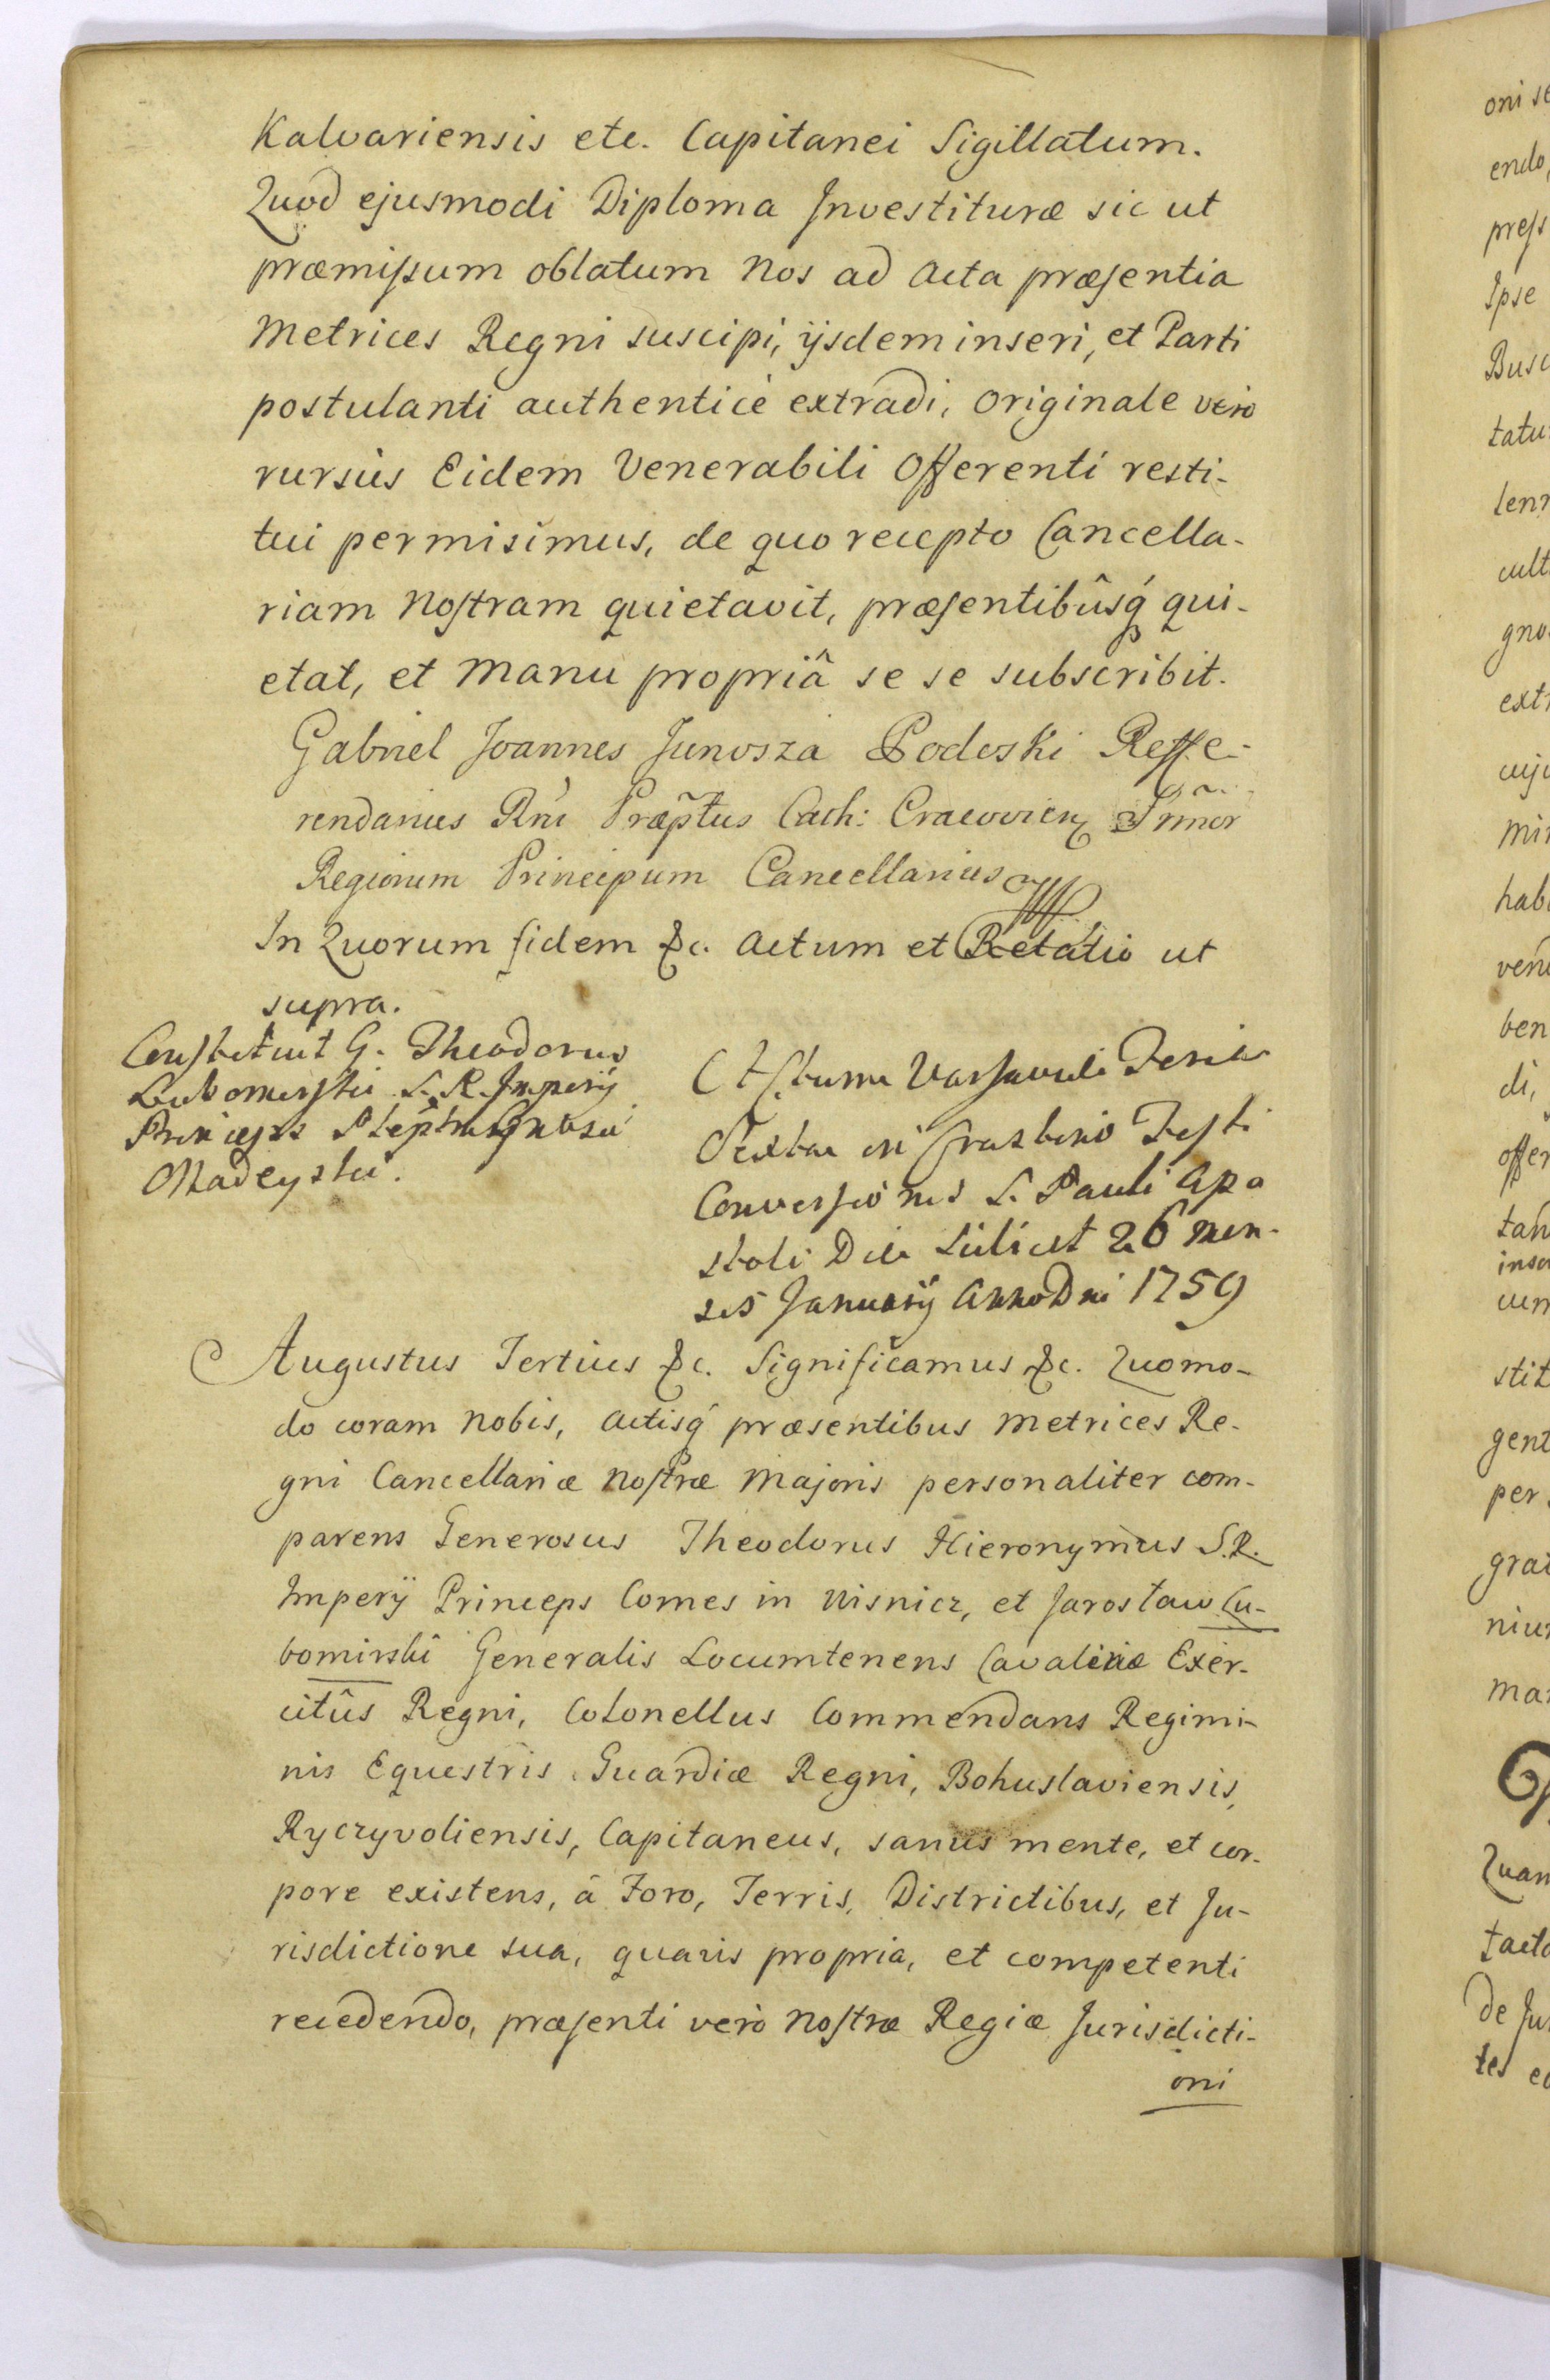 Kalvariensis etc. Capitanei Sigillatum.
Quod ejusmodi Diploma Investituræ sic ut
præmissum oblatum Nos ad Acta præsentia
Metrices Regni suscipi, ijsdem inseri, et Parti
postulanti authenticè extradi, Originale vero
rursùs Eidem Venerabili Offerenti resti-
tui permisimus, de quo recepto Cancella-
riam Nostram quietavit, præsentibûsq́ qui-
etat, et Manu propriâ se se subscribit.
Gabriel Joannes Junosza Podoski Reffe-
rendarius Rni Præptus Cath: Cracovien
Regiorum Principum Cancellarius
In Quorum fidem &c. Actum et Relatio ut
supra.
Constituit G. Theodorus
Lubomirski S. R. Imperij
Princeps
Madeyski.
Actum Varsaviæ Feria
Sexta in Crastino Festi
Conversionis S. Pauli Apo
stoli Die Scilicet 26 Men-
sis Januarij Anno Dni 1759
Augustus Tertius &c. Significamus &c. Quomo-
do coram Nobis, Actisq́ præsentibus Metrices Re-
gni Cancellariæ Nostræ Majoris personaliter com-
parens Generosus Theodorus Hieronymus S. R.
Imperij Princeps Comes in Wisnicz, et Jarosław Lu-
bomirski Generalis Locumtenens Cavaleriæ Exer-
citûs Regni, Colonellus Commendans Regimi-
nis Equestris Guardiæ Regni, Bohuslaviensis,
Ryczyvoliensis, Capitaneus, sanus mente, et cor-
pore existens, â Foro, Terris, Districtibus, et Ju-
risdictione sua, quavis propria, et competenti
recedendo, præsenti verò Nostræ Regiæ Jurisdicti-
oni